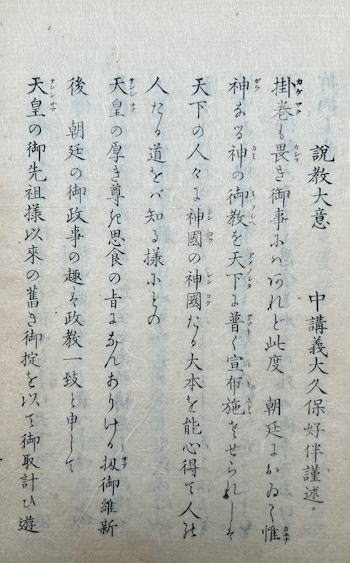 說教大意　　中講義大久保好伴謹述
掛巻も畏き御事にハあれど此度　朝廷にかゐて惟
神なる神の御教を天下に普く宣布施させられしは
天下の人々に神國の神國たる大本を能心得て人の
人たる道をバ知る様にとの
天皇の厚き尊き思食の旨になんありける扨御維新
後　朝廷の御政事の趣は政教一致と申して
天皇の御先祖様以來の舊き御掟を以て御取計ひ遊